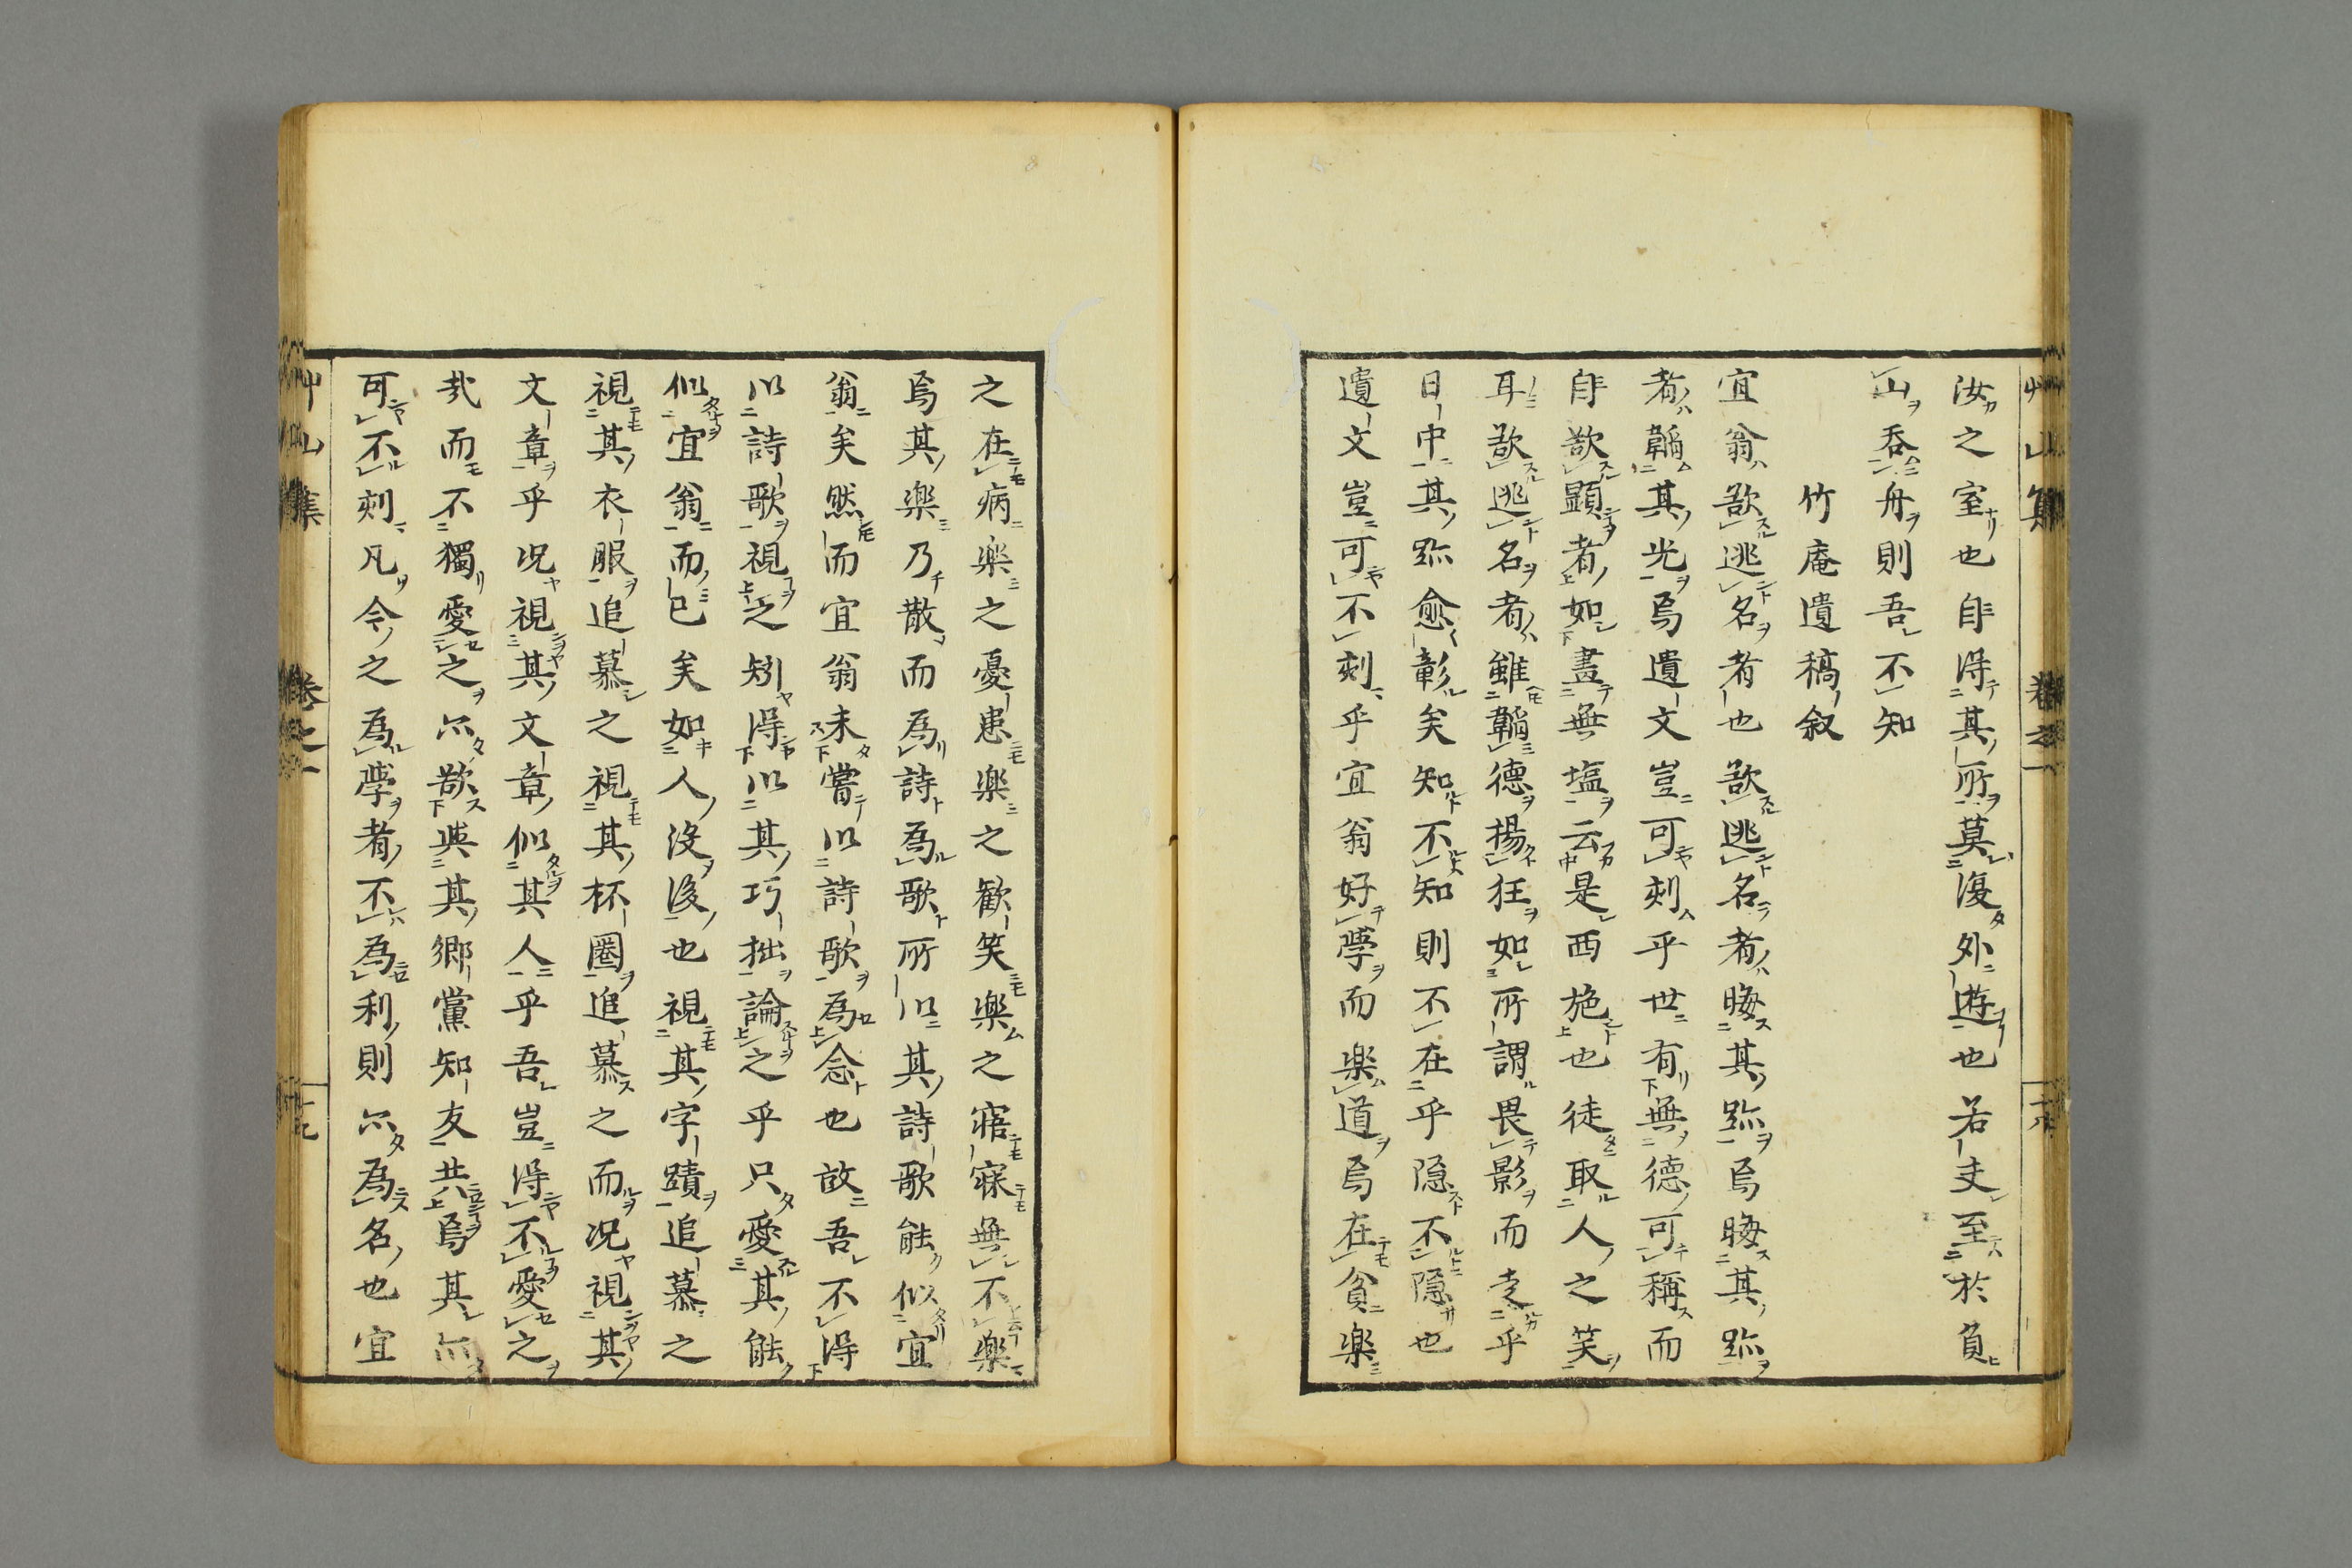 艸山集　卷之一
汝之室也自得其所莫復外遊也若夫至於負
山呑舟則吾不知
竹庵遺稿叙
宜翁欲逃名者也欲逃名者晦其跡焉晦其跡
者韜其光焉遺文豈可刻乎世有無德可稱而
自欲顕者如畫無塩云是西施也徒取人之笑
耳欲逃名者雖韜德揚狂如所謂畏影而走乎
日中其跡愈彰矣知不知則不在乎隠不隠也
遺文豈可不刻乎宜翁好學而楽道焉在貧楽
之在病楽之憂患楽之歡笑楽之寤寐無不楽
焉其楽乃散而為詩為歌所以其詩歌能似宜
翁矣然而宜翁未嘗以詩歌為念也故吾不得
以詩歌視之矧得以其巧拙論之乎只愛其能
似宜翁而已矣如人没後也視其字蹟追慕之
視其衣服追慕之視其杯圏追慕之而况視其
文章乎况視其文章似其人乎吾豈得不愛之
哉而不獨愛之亦欲與其郷黨知友共焉其亦
可不刻凡今之為學者不為利則亦為名也宜
艸山集　卷之一